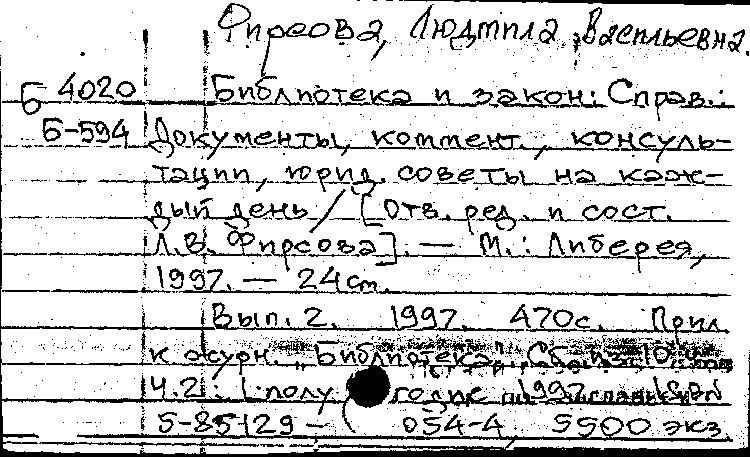 Фирсова, Людмила Васильевна.
Б 4020 Библиотека и закон: Справ.:
Б-594 Документы, коммент., консуль-
тации, юрид. советы на каж-
дый день / [Отв. ред. и сост.
Л.В. Фирсова]. — М.: Либерея,
1997. — 24см.
Вып. 2. 1997. 470с. Прил.
к журн. „Библиотека".
Ч.2: 1 полу годие 1997 ISBN
5-85129-054-4, 5500 экз.